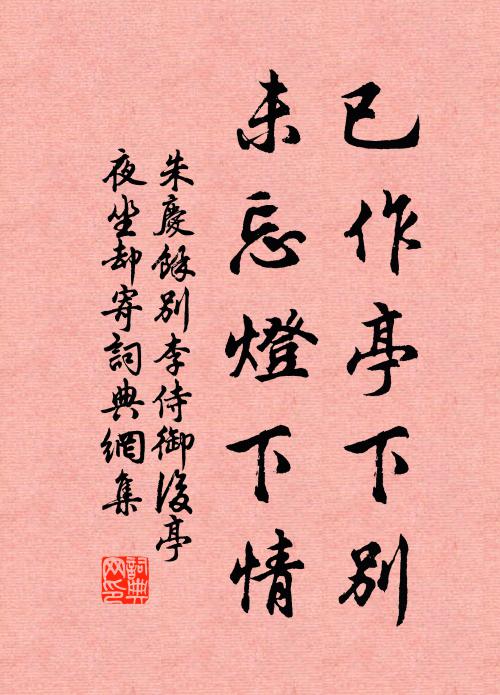 已作亭下別
未忘燈下情
朱慶餘別李侍御後亭
夜坐却寄詞典網集
詞典
网印